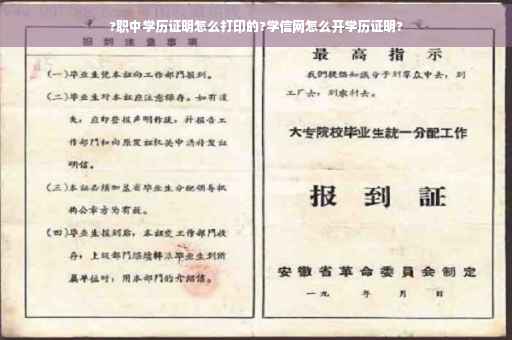 ?职中学历证明怎么打印的?学信网怎么开学历证明?
报到注意事项
(一)毕业生凭本证向工作部门报到。
(二)毕业生对本证应注意保存。如有遗
失,应即登报声明作废,并报告工
作部门和向原发证机关申请补发证
明信。
(三)本证必须加盖省毕业生分配领导机
构公章方为有效。
(四)毕业生报到后,本证交工作部门收
存;上级部门继续转派毕业生到所
属单位时,用本部门的介绍信。
最高指示
我们提倡知识分子到群众中去,到
工厂去,到农村去。
大专院校毕业生统一分配工作
报到証
安徽省革命委員会制定
一九 年 月 日